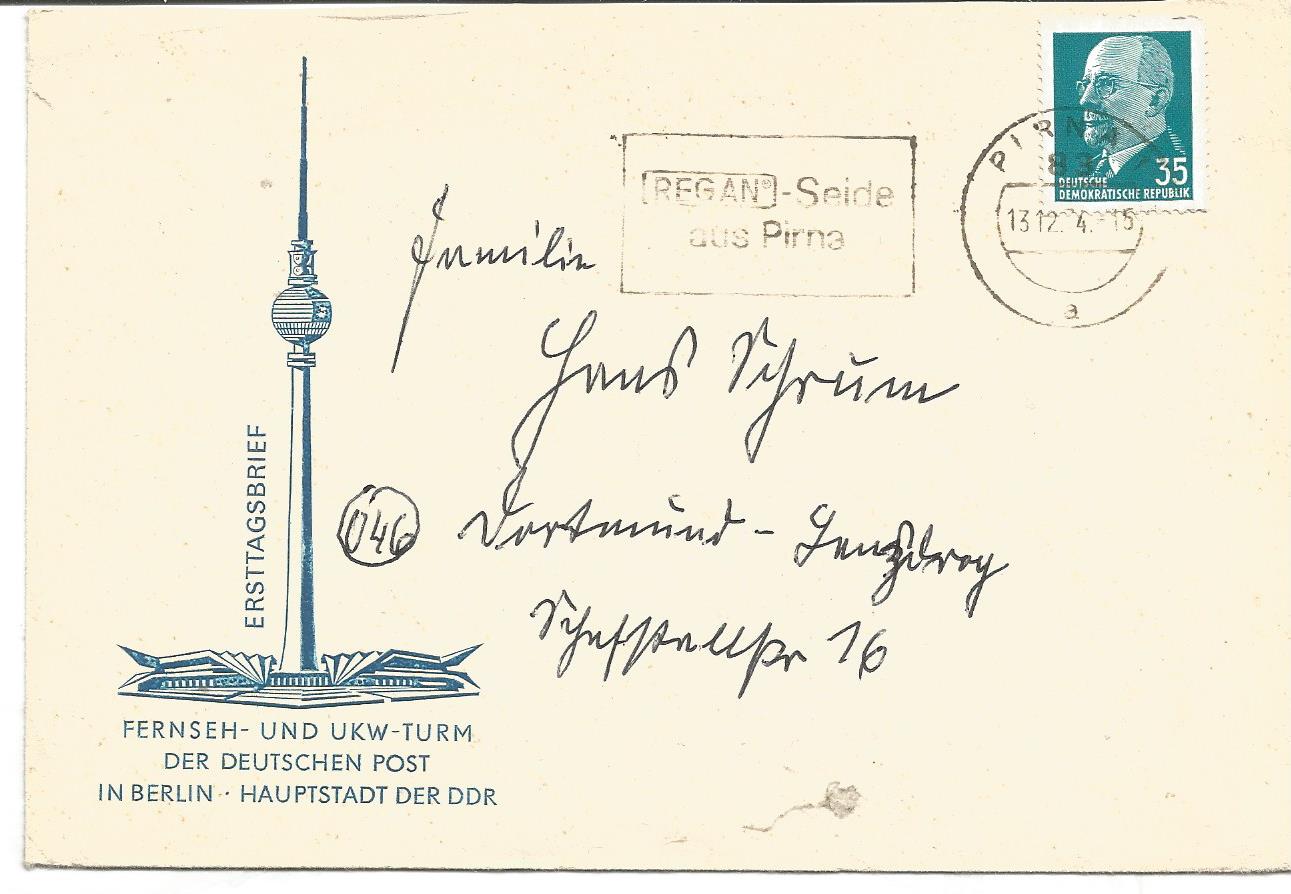 DEUTSCHE
DEMOKRATISCHE REPUBLIK
35
PIRNA
83
13.12. 4.-15
a
REGAN®-Seide
aus Pirna
Familie
Hans Schrum
Ü46
Dortmund -
Schafstallstr 16
ERSTTAGSBRIEF
FERNSEH- UND UKW-TURM
DER DEUTSCHEN POST
IN BERLIN · HAUPTSTADT DER DDR